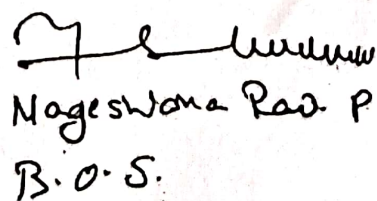 Nageswara Rao P
B.O.S.